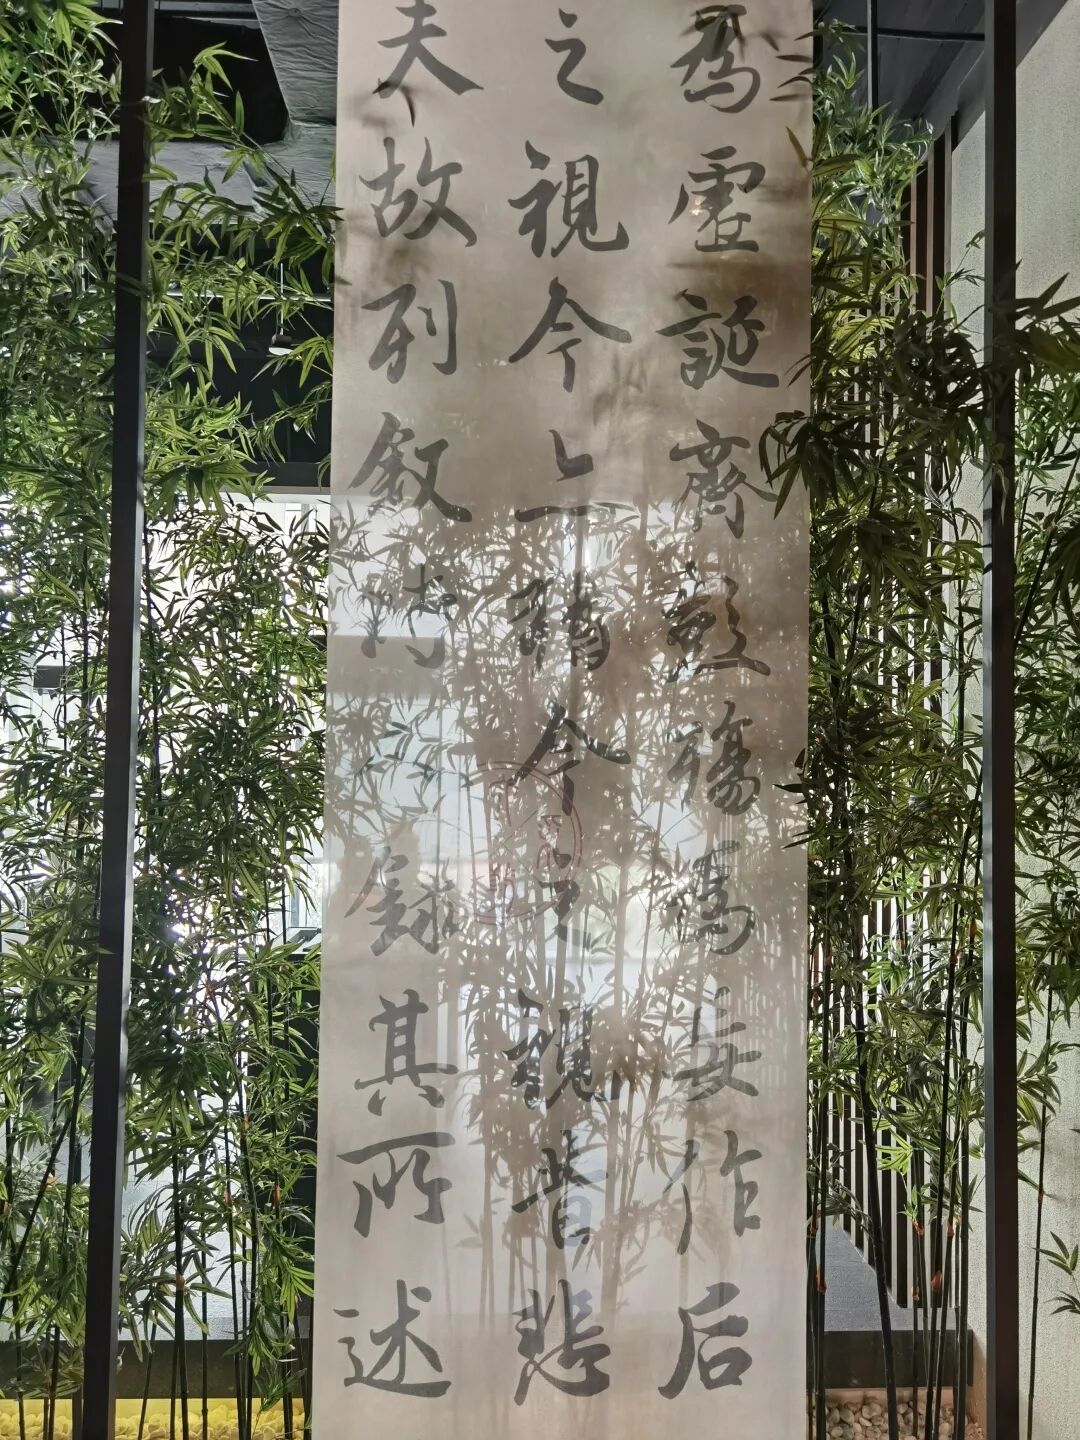 為虛誕齊彭殤為妄作后
之視今上猶今之視昔悲
夫故列叙時人錄其所述